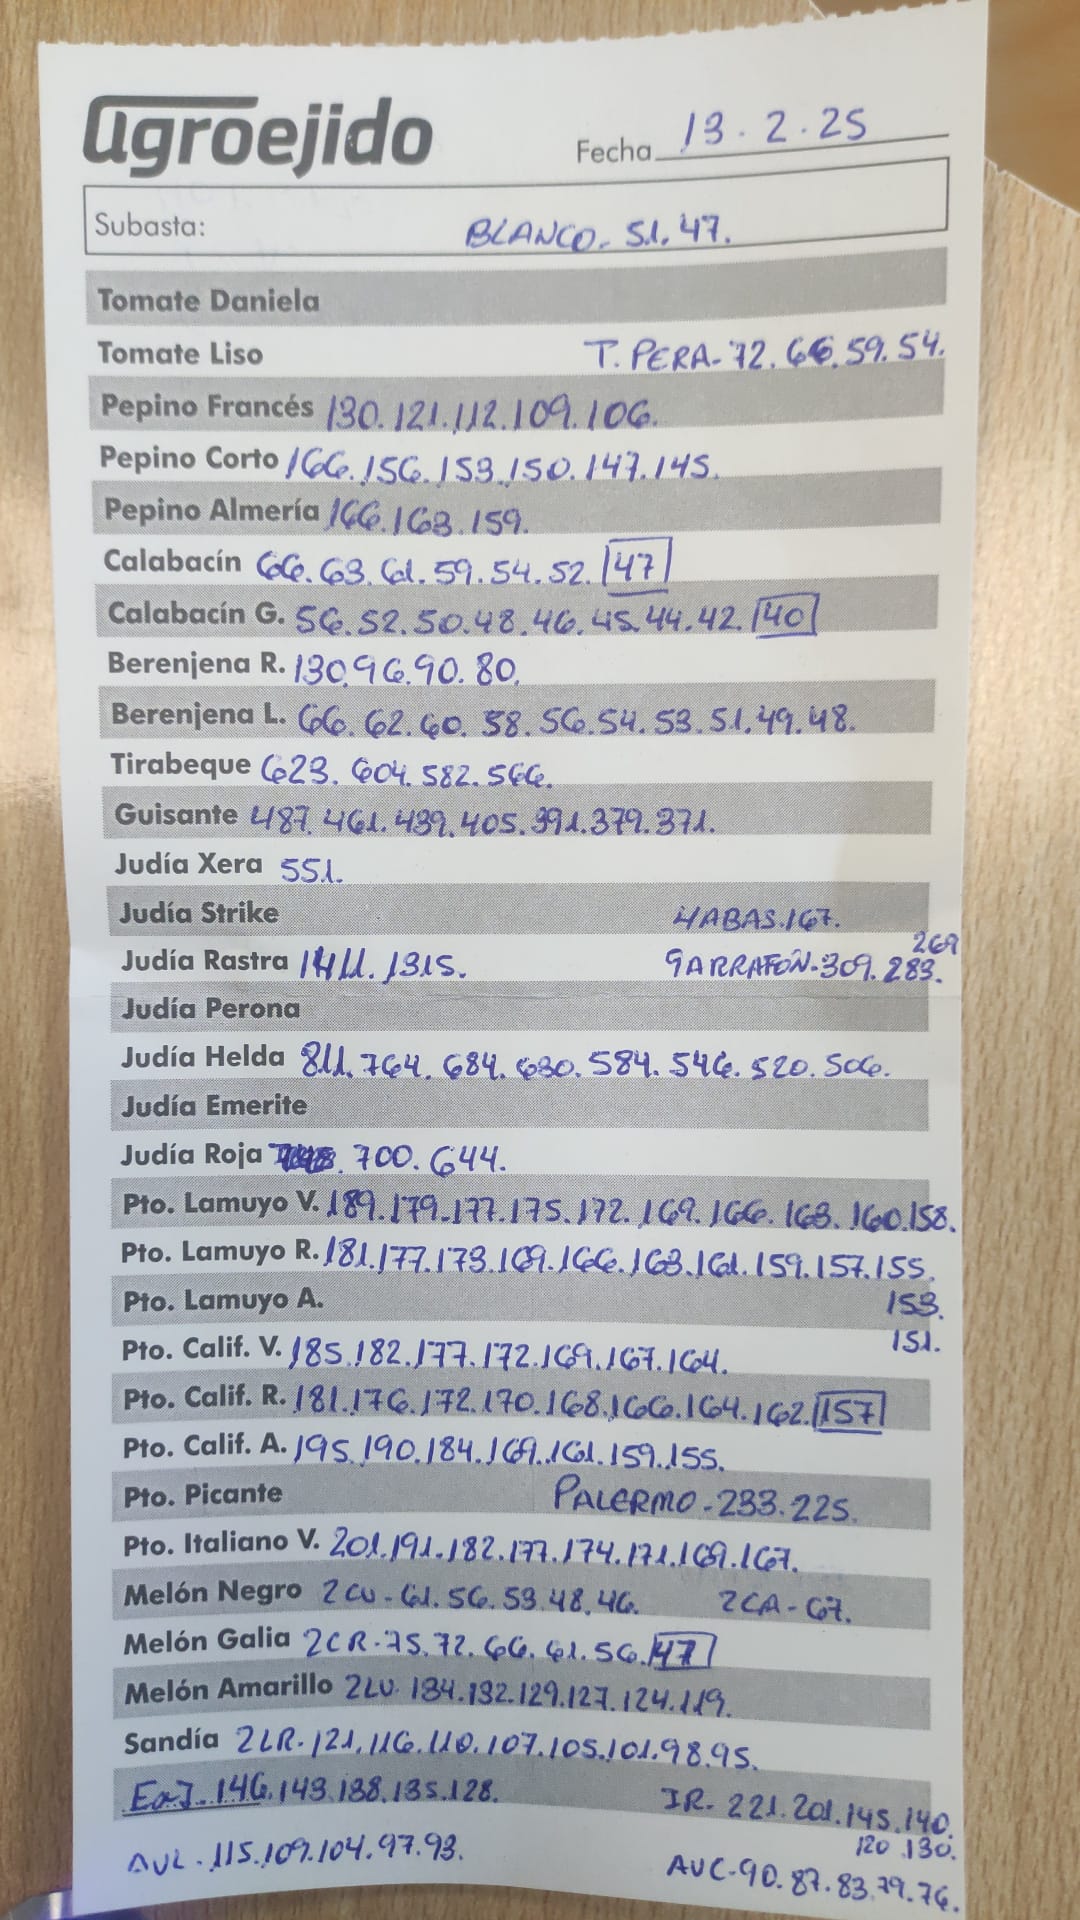 agroejido
Fecha 13.2.25
Subasta: BLANCO- 51.47.
Tomate Daniela
Tomate Liso T. PERA-72.66.59.54.
Pepino Francés 130.121.112.109.106.
Pepino Corto 166.156.153.150.147.145.
Pepino Almería 166.163.159.
Calabacín 66.63.61.59.54.52. 47
Calabacín G. 56.52.50.48.46.45.44.42. 40
Berenjena R. 130.96.90.80.
Berenjena L. 66.62.60.58.56.54.53.51.49.48.
Tirabeque 623.604.582.566.
Guisante 487.461.439.405.391.379.371.
Judía Xera 551.
Judía Strike HABAS.167.
269
Judía Rastra 1411.1315. GARRAFÓN-309.283.
Judía Perona
Judía Helda 811.764.684.630.584.546.520.506.
Judía Emerite
Judía Roja 700.644.
Pto. Lamuyo V. 189.179-177.175.172.169.166.163.160.158.
Pto. Lamuyo R. 181.177.173.169.166.163.161.159.157.155.
Pto. Lamuyo A. 153.
151.
Pto. Calif. V. 185.182.177.172.169.167.164.
Pto. Calif. R. 181.176.172.170.168.166.164.162. 157
Pto. Calif. A. 195.190.184.169.161.159.155.
Pto. Picante PALERMO-233.225.
Pto. Italiano V. 201.191.182.177.174.171.169.167.
Melón Negro 2CU-61.56.53.48.46. 2CA-67.
Melón Galia 2CR-75.72.66.61.56. 47
Melón Amarillo 2LU. 134.132.129.127.124.119.
Sandía 2LR-121.116.110.107.105.101.98.95.
146.143.138.135.128. IR-221.201.145.140.
120.130.
AVL-115.109.104.97.93. AVC-90.87.83.79.76.